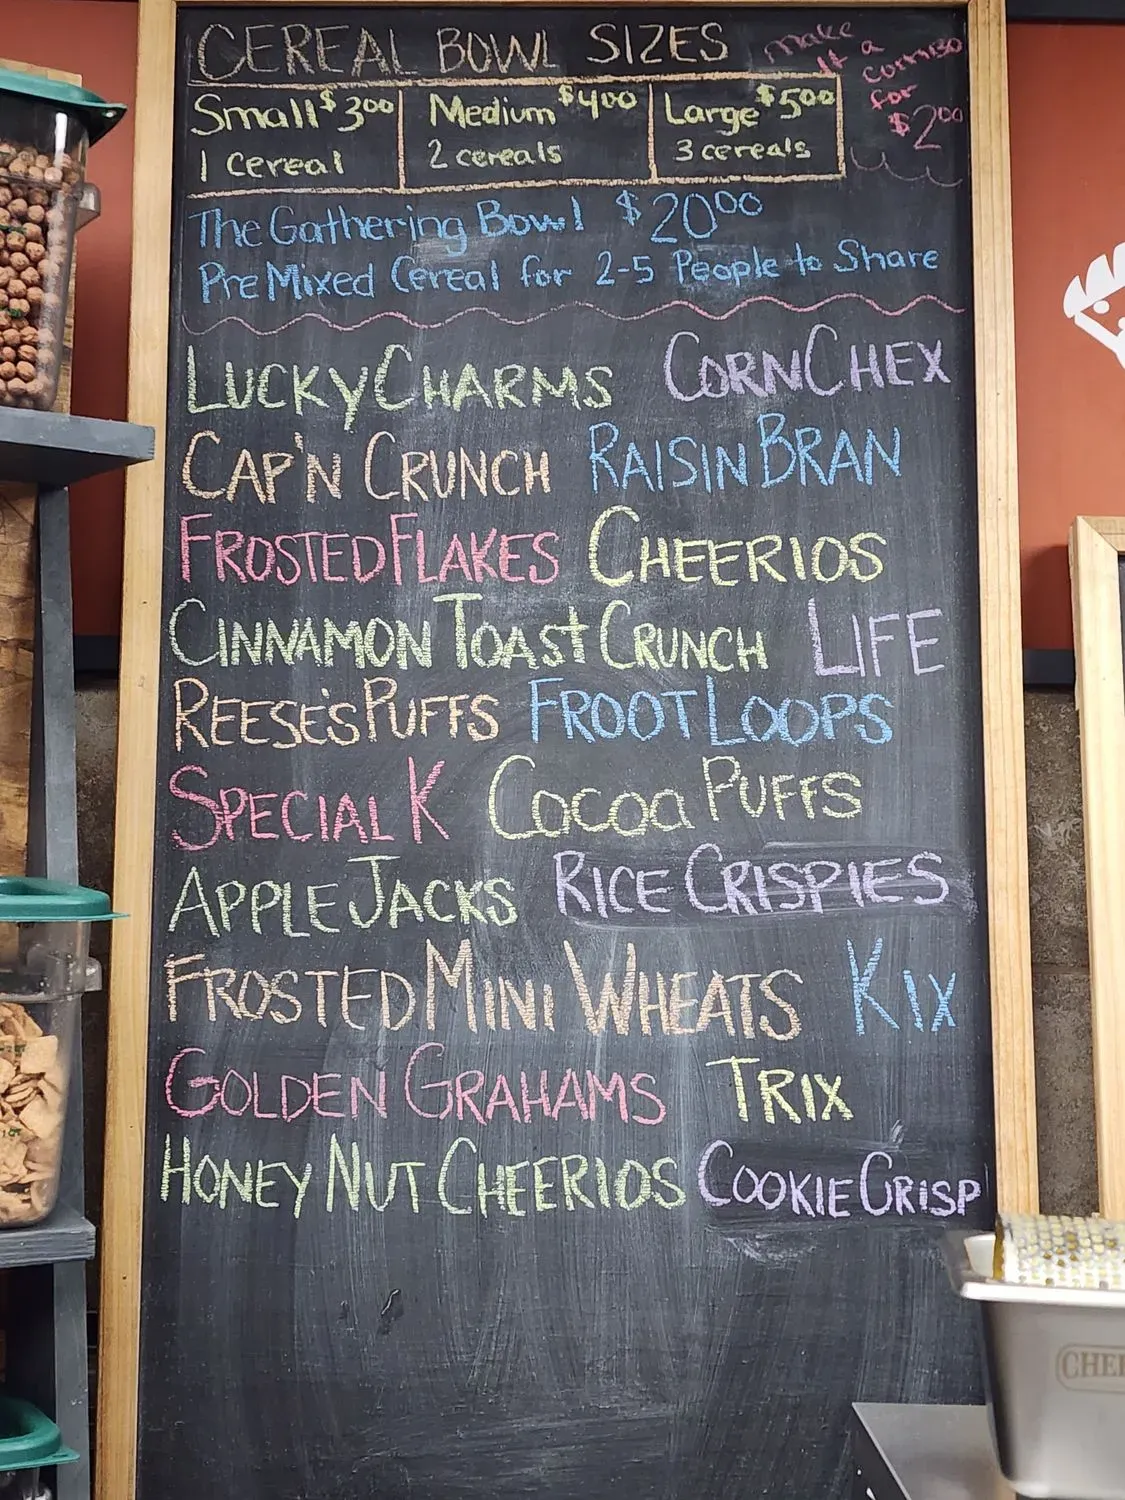 CEREAL BOWL SIZES
make
it a
combo
for
$2.00
Small $3.00
1 cereal
Medium $4.00
2 cereals
Large $5.00
3 cereals
The Gathering Bowl $20.00
Pre Mixed Cereal for 2-5 People to Share
LUCKY CHARMS CORN CHEX
CAP'N CRUNCH RAISIN BRAN
FROSTED FLAKES CHEERIOS
CINNAMON TOAST CRUNCH LIFE
REESE'S PUFFS FROOT LOOPS
SPECIAL K COCOA PUFFS
APPLE JACKS RICE CRISPIES
FROSTED MINI WHEATS KIX
GOLDEN GRAHAMS TRIX
HONEY NUT CHEERIOS COOKIE CRISP